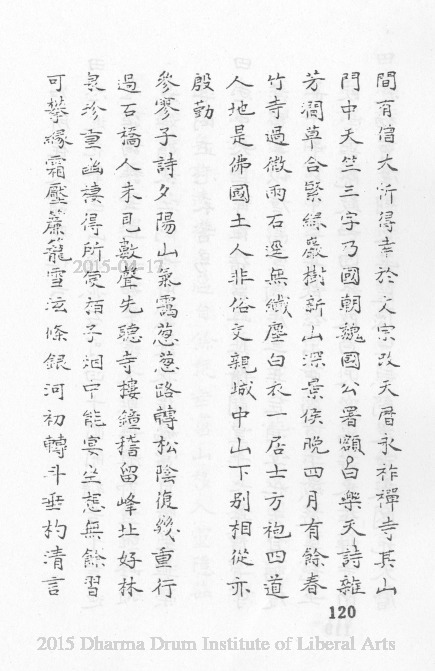 間有僧大訢得幸於文宗改天曆永祚禪寺其山
門中天竺三字乃國朝魏國公署額白樂天詩雜
芳澗草合繁綠巖樹新山深景侯晚四月有餘春
竹寺過微雨石逕無纖塵白衣一居士方袍四道
人地是佛國土人非俗交親城中山下別相從亦
殷勤
參寥子詩夕陽山氣靄葱葱路轉松陰復幾重行
過石橋人未見數聲先聽寺樓鐘稽留峰址好林
泉珍重幽棲得所便栢子烟中能宴坐想無餘習
可攀緣霜壓簾籠雪泫條銀河初轉斗垂杓清言
120
2015-04-17
2015 Dharma Drum Institute of Liberal Arts